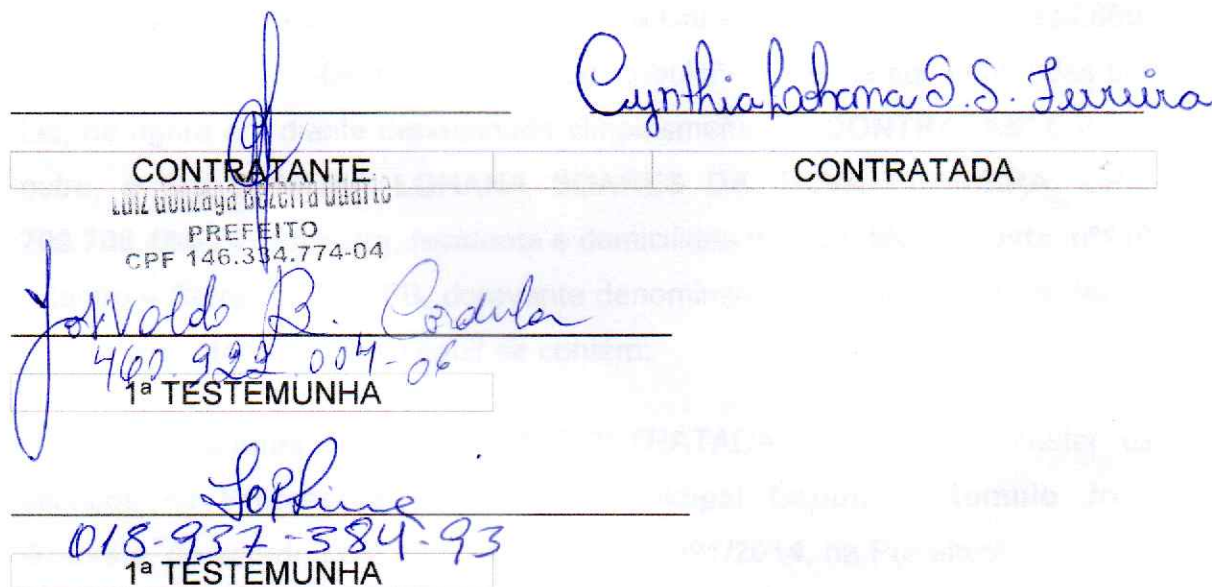 Cynthia Lohana S.S. Ferreira
CONTRATANTE CONTRATADA
Luiz Gonzaga Bezerra Duarte
PREFEITO
CPF 146.334.774-04
Josivaldo B. Cordula
460.922.004-06
1ª TESTEMUNHA
018-937-384-93
1ª TESTEMUNHA